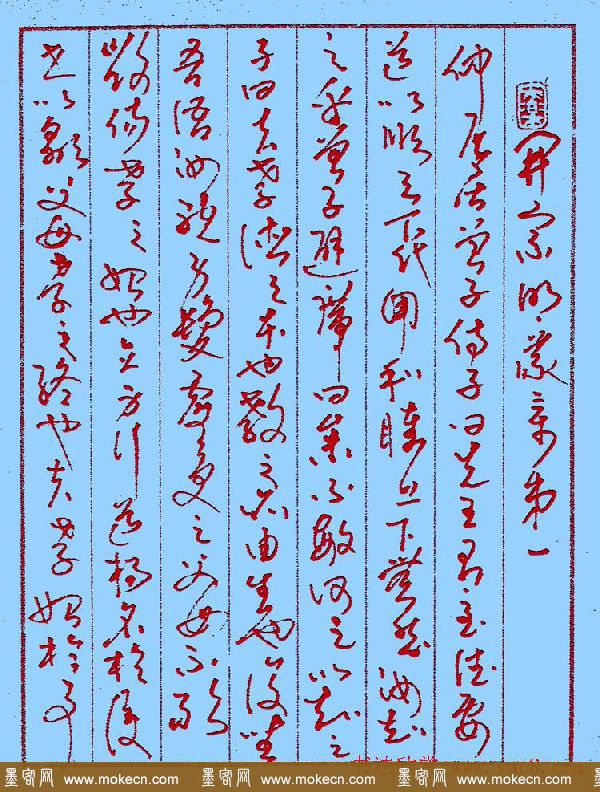 開宗明義章第一
仲尼居曾子侍子曰先王有至德要
道以順天下代用和睦上下無怨汝知
之乎曾子避席曰參不敏何足以知之
子曰夫孝德之本也教之所由生也復坐
吾語汝體身髮膚受之父母不敢
毀傷孝之始也立身行道揚名於後
世以顯父母孝之終也夫孝始於事
墨客网 www.mokecn.com 墨客网 www.mokecn.com 墨客网 www.mokecn.com